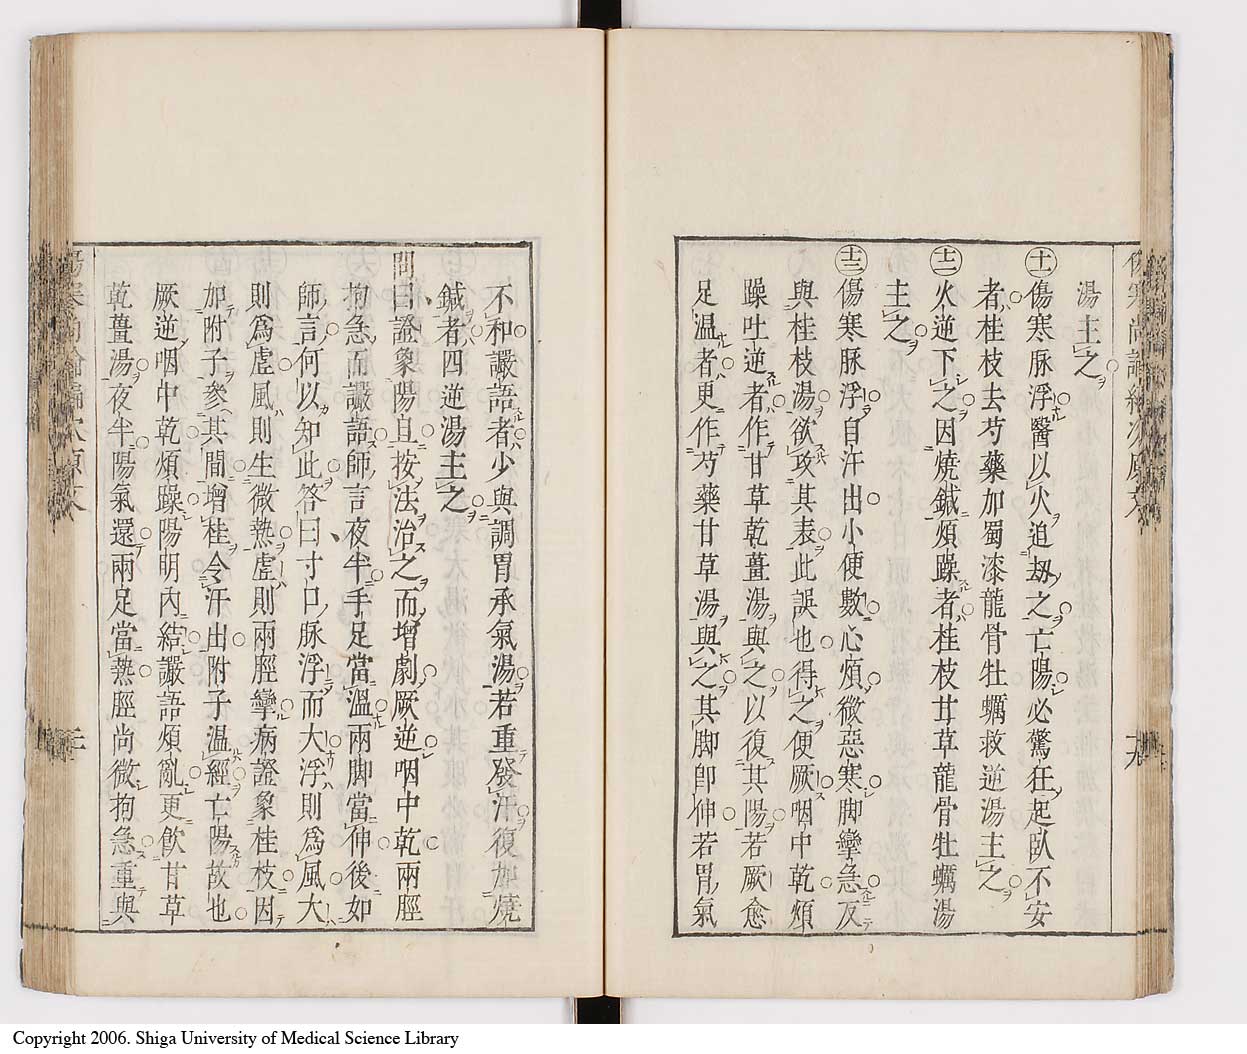 湯主之
㊉一傷寒脉浮醫以火追劫之亡陽必驚狂起臥不安
者桂枝去芍藥加蜀漆龍骨牡蠣救逆湯主之
十二火逆下之因燒鍼煩躁者桂枝甘草龍骨牡蠣湯
主之
十三傷寒脉浮自汗出小便數心煩微惡寒脚攣急反
與桂枝湯欲攻其表此誤也得之便厥咽中乾煩
躁吐逆者作甘草乾薑湯與之以復其陽若厥愈
足温者更作芍藥甘草湯與之其脚卽伸若胃氣
不和讝語者少與調胃承氣湯若重發汗復加燒
鍼者四逆湯主之
問曰證象陽旦按法治之而增劇厥逆咽中乾兩脛
拘急而讝語師言夜半手足當温兩脚當伸後如
師言何以知此答曰寸口脉浮而大浮則爲風大
則爲虛風則生微熱虛則兩脛攣病證象桂枝因
加附子參其間增桂令汗出附子温經亡陽故也
厥逆咽中乾煩躁陽明內結讝語煩亂更飮甘草
乾薑湯夜半陽氣還兩足當熱脛尚微拘急重與
Copyright 2006. Shiga University of Medical Science Library